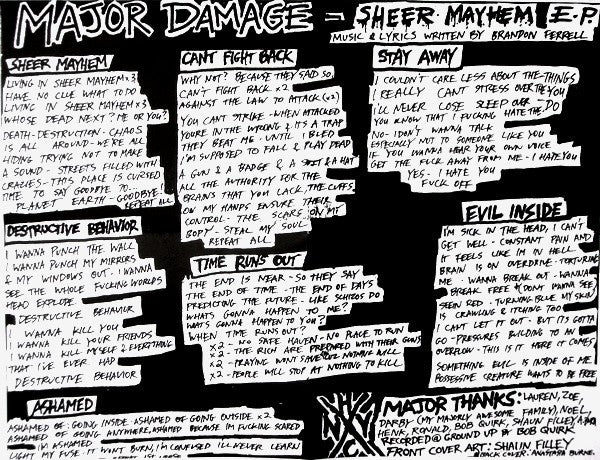 MAJOR DAMAGE - SHEER MAYHEM E.P.
MUSIC & LYRICS WRITTEN BY BRANDON FERRELL
SHEER MAYHEM
LIVING IN SHEER MAYHEM x3
HAVE NO CLUE WHAT TO DO
LIVING IN SHEER MAYHEM x3
WHOSE DEAD NEXT? ME OR YOU?
DEATH-DESTRUCTION-CHAOS
IS ALL AROUND-WE'RE ALL
HIDING TRYING NOT TO MAKE
A SOUND - STREETS FILLED WITH
CRAZIES - THIS PLACE IS CURSED
TIME TO SAY GOODBYE TO...
PLANET EARTH - GOODBYE!
REPEAT ALL
DESTRUCTIVE BEHAVIOR
I WANNA PUNCH THE WALL
I WANNA PUNCH MY MIRRORS
& MY WINDOWS OUT. I WANNA
SEE THE WHOLE FUCKING WORLDS
HEAD EXPLODE.
DESTRUCTIVE BEHAVIOR
I WANNA KILL YOU
I WANNA KILL YOUR FRIENDS
I WANNA KILL MYSELF & EVERYTHING
THAT I'VE EVER HAD
DESTRUCTIVE BEHAVIOR
ASHAMED
ASHAMED OF: GOING INSIDE. ASHAMED OF GOING OUTSIDE x2
ASHAMED OF GOING ANYWHERE, ASHAMED BECAUSE IM FUCKING SCARED
I'M ASHAMED
LIGHT MY FUSE. IT WONT BURN, I'M CONFUSED I'LL NEVER LEARN
CANT FIGHT BACK
WHY NOT? BECAUSE THEY SAID SO,
CAN'T FIGHT BACK x2
AGAINST THE LAW TO ATTACK (x2)
YOU CANT STRIKE - WHEN ATTACKED
YOURE IN THE WRONG & ITS A TRAP
THEY BEAT ME - UNTIL I BLEED
I'M SUPPOSED TO FALL & PLAY DEAD
A GUN & A BADGE & A & A HAT
ALL THE AUTHORITY FOR THE
BRAINS THAT YOU LACK, THE CUFFS
ON MY HANDS ENSURE THEIR
CONTROL - THE SCARS ON MY
BODY - STEAL MY SOUL
REPEAT ALL
TIME RUNS OUT
THE END IS NEAR - SO THEY SAY
THE END OF TIME - THE END OF DAYS
PREDICTING THE FUTURE - LIKE SCHIZOS DO
WHATS GONNA HAPPEN TO ME?
WATS GONNA HAPPEN TO YOU?
WHEN TIME RUNS OUT?
x2 - NO SAFE HAVEN - NO PLACE TO RUN
x2 - THE RICH ARE PREPARED WITH THEIR GUNS
x2 - PRAYING WONT SAVE YOU. NOTHING WILL
x2 - PEOPLE WILL STOP AT NOTHING TO KILL
STAY AWAY
I COULDN'T CARE LESS ABOUT THE THINGS
I REALLY CANT STRESS OVER THE YOU
I'LL NEVER LOSE SLEEP OVER - DO
YOU KNOW THAT I FUCKING HATE THE
NO - I DON'T WANNA TALK
ESPECIALLY NOT TO SOMEONE LIKE YOU
IF YOU WANNA HEAR YOUR OWN VOICE
GET THE FUCK AWAY FROM ME - I HATE YOU
YES - I HATE YOU
FUCK OFF
EVIL INSIDE
I'M SICK IN THE HEAD, I CAN'T
GET WELL - CONSTANT PAIN AND
IT FEELS LIKE IM IN HELL
BRAIN IS ON OVERDRIVE - TORTURING
ME - WANNA BREAK OUT - WANNA
BREAK FREE (DONT WANNA SEE)
SEEIN RED - TURNING BLUE MY SKIN
IS CRAWLING & ITCHING TOO
I CANT LET IT OUT - BUT ITS GOTTA
GO - PRESSURES BUILDING TO AN
OVERFLOW - THIS IS IT HERE IT COMES
SOMETHING EVIL IS INSIDE OF ME
POSSESSIVE CREATURE WANTS TO BE FREE
MAJOR THANKS: LAUREN, ZOE,
DARBY (MY MAJORLY AWESOME FAMILY), NOEL,
HENK, RONALD, BOB QUIRK, SHAUN FILLEY
RECORDED @ GROUND UP BY BOB QUIRK
FRONT COVER ART: SHAUN FILLEY
BACK COVER: ANASTASIA BURNE